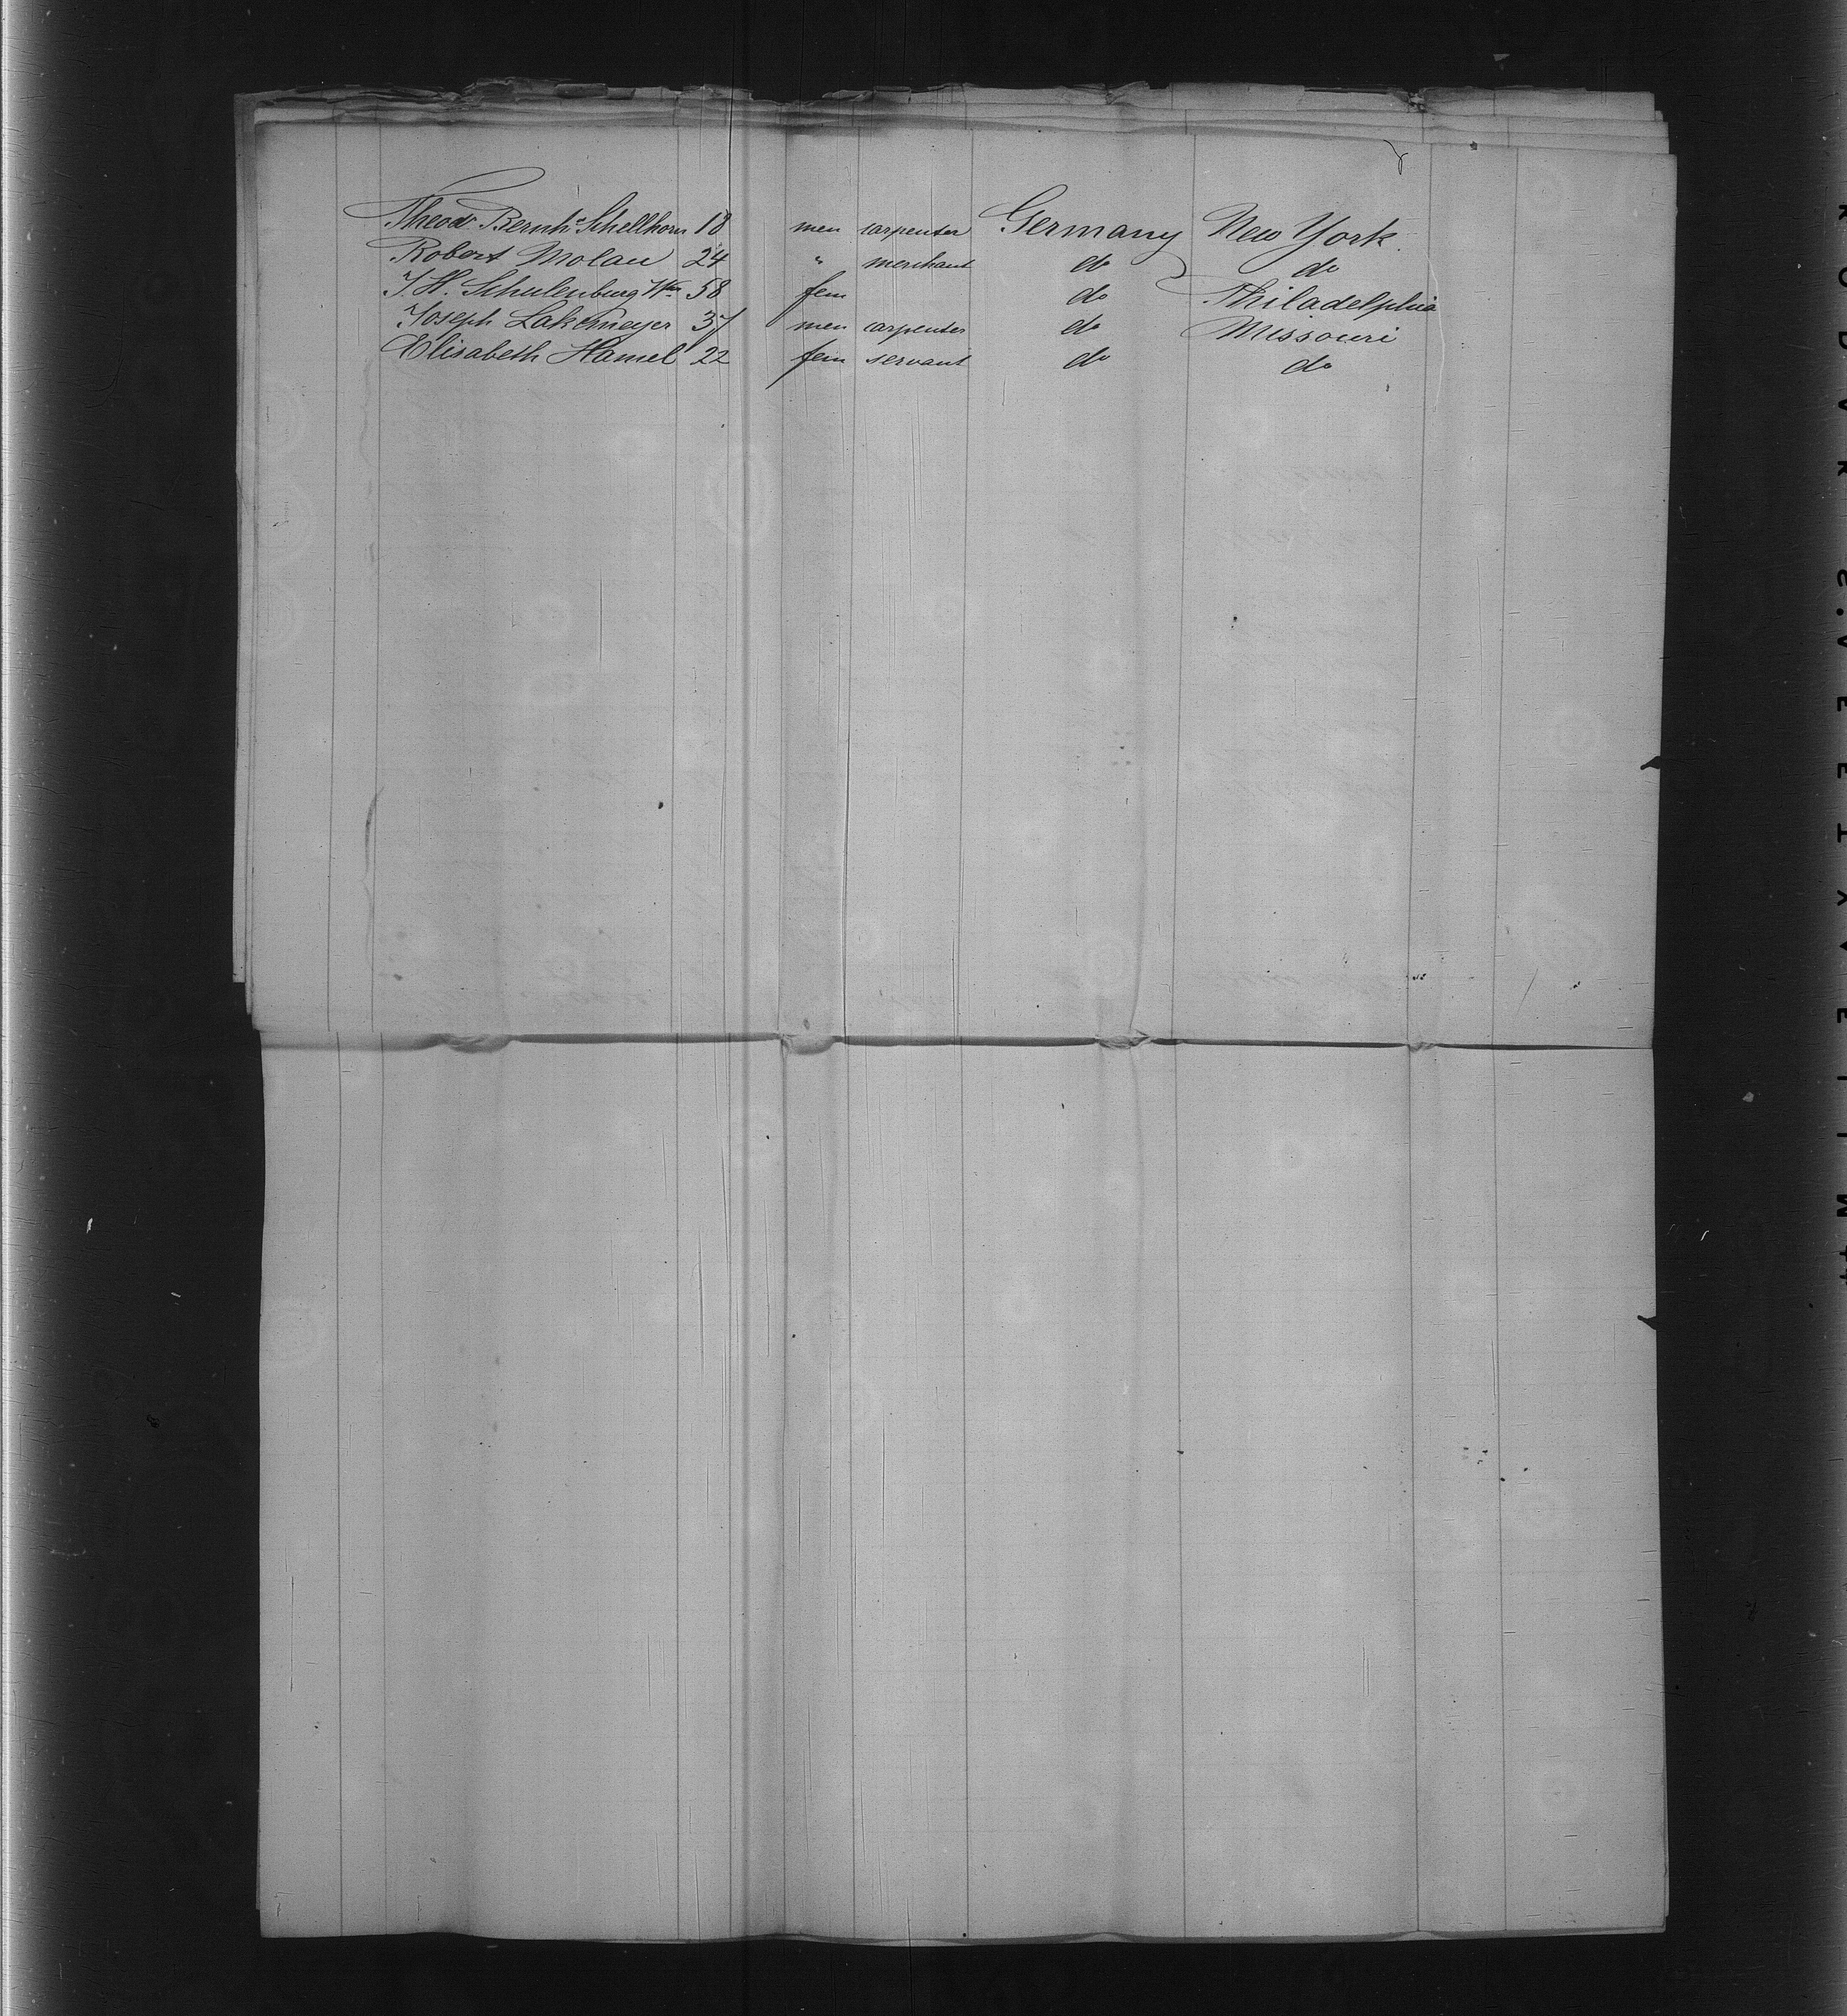 Theodr Bernhd Schellhorn 18 men carpenter Germany New York
Robert Molau 24 " merchant do do
J. H. Schulenburg Wwe 58 fem do Philadelphia
Joseph Lakemeyer 37 men carpenter do Missouri
Elisabeth Hamel 22 fem servant do do